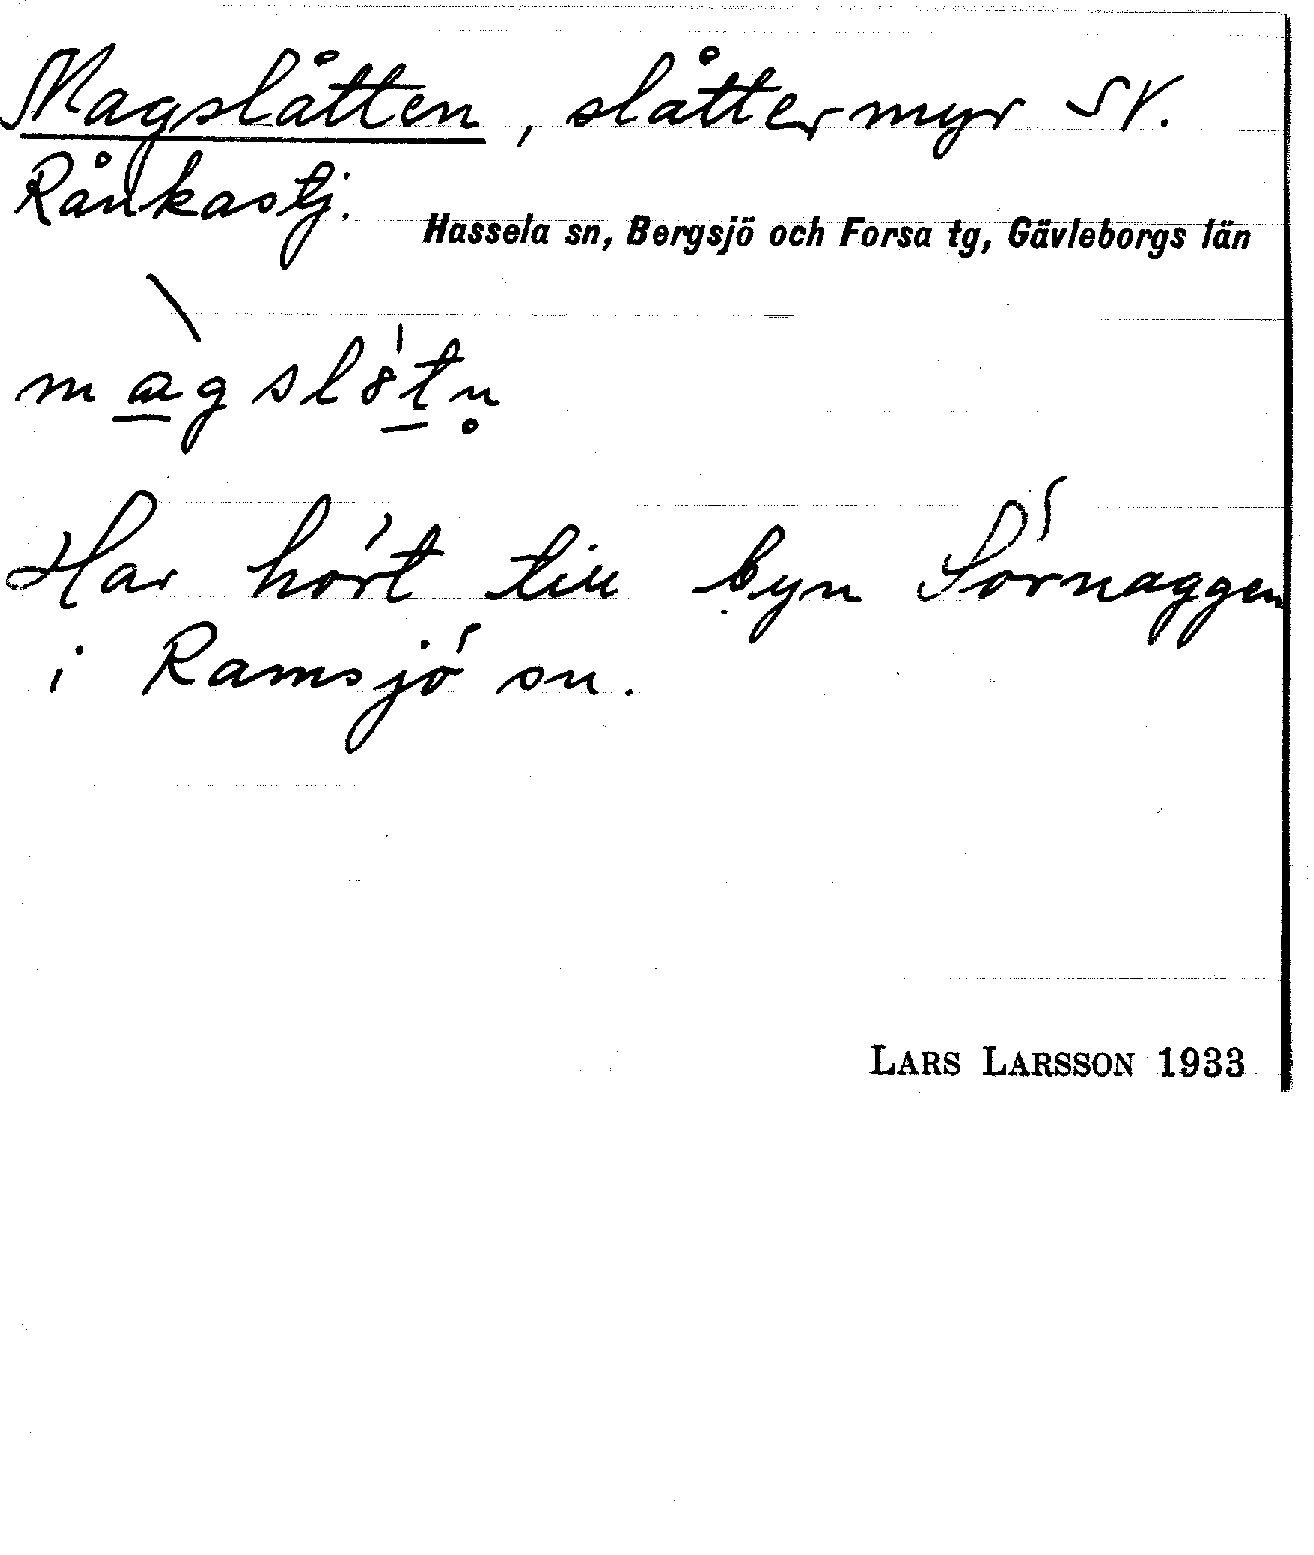 Magslåtten, slåttermyr SV.
Rånkastj.
Hassela sn, Bergsjö och Forsa tg, Gävleborgs län
màgslo̍tn̥
Har hört till byn Sörnaggen
i Ramsjö sn.
LARS LARSSON 1933